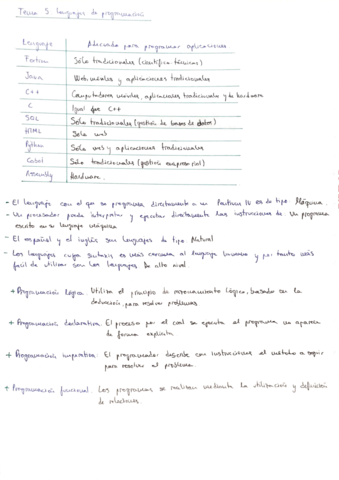 Tema 5: Lenguajes de programación
Lenguaje Adecuado para programar aplicaciones
Fortran Sólo tradicionales (científico técnicas)
Java Web, móviles y aplicaciones tradicionales
C++ Computadores, móviles, aplicaciones tradicionales y de hardware
C Igual que C++
SQL Sólo tradicionales (gestión de bases de datos)
HTML Sólo web
Python Sólo web y aplicaciones tradicionales
Cobol Sólo tradicionales (gestión empresarial)
Assembly Hardware
- El lenguaje con el que se programa directamente a un es de tipo Máquina.
- Un procesador puede interpretar y ejecutar directamente las instrucciones de un programa
escrito en su lenguaje máquina
- El español y el inglés son lenguajes de tipo Natural
- Los lenguajes cuya sintaxis es más cercana al lenguaje humano y por tanto más
fácil de utilizar son los lenguajes De alto nivel
+ Programación lógica Utiliza el principio de razonamiento lógico, basados en la
deducción, para resolver problemas
+ Programación declarativa El proceso por el cual se ejecuta el programa no aparece
de forma explícita
+ Programación imperativa El programador describe con instrucciones el método a seguir
para resolver el problema.
+ Programación funcional. Los programas se realizan mediante la utilización y definición
de relaciones.